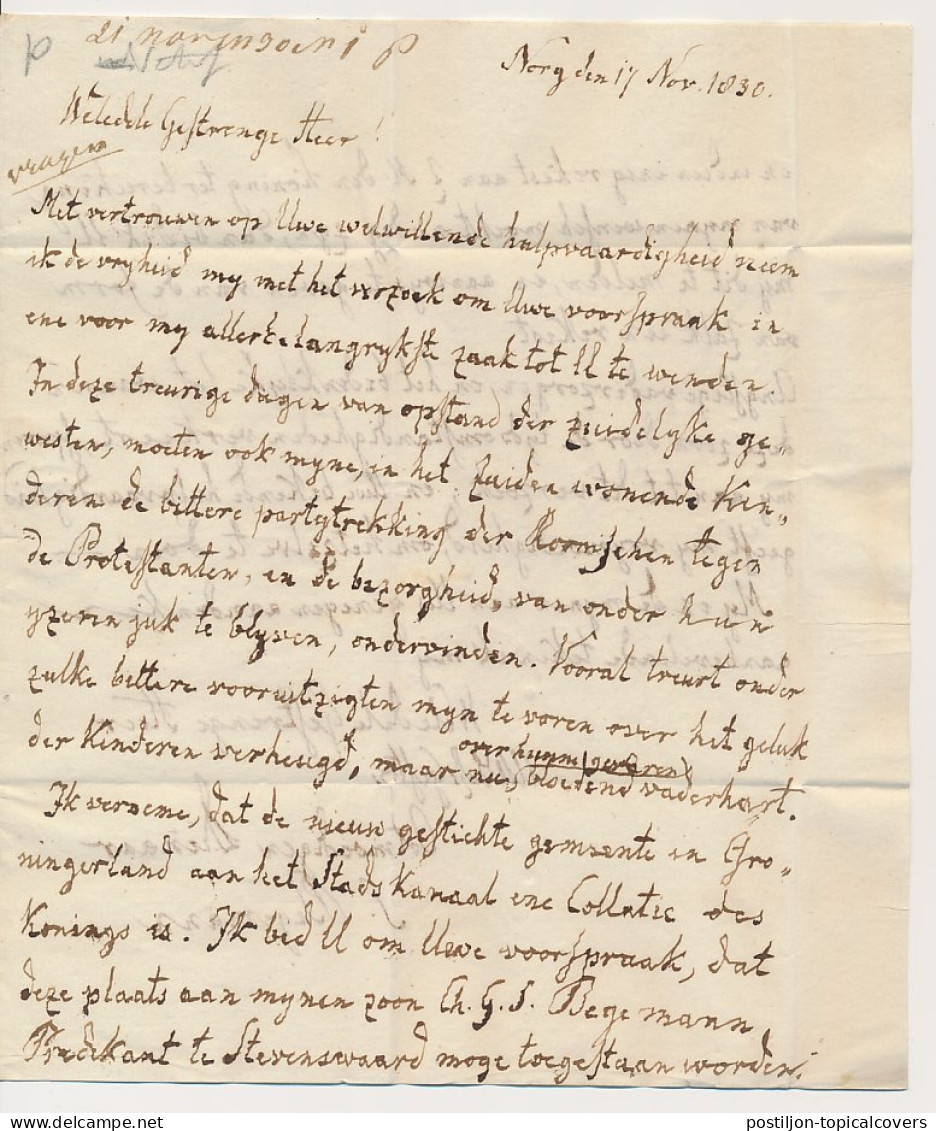 Norg den 17 Nov. 1830.
Weledele Gestrenge Heer!
vragen
Met vertrouwen op Uwe welwillende hulpvaardigheid neem
ik de vryheid my met het verzoek om Uwe voorspraak in
ene voor my allerbelangrykste zaak tot U te wenden
In deze treurige dagen van opstand der zuidelyke ge„
westen, moeten ook myne, in het Zuiden wonende Kin„
deren de bittere partytrekking der Roomschen tegen
de Protestanten, en de bezorgheid, van onder hun
yzeren juk te blyven, ondervinden. Vooral treurt onder
zulke bittere vooruitzigten myn te voren over het geluk
der Kinderen verheugd, maar nu, over hunne gevaren
bloedend vaderhart.
Ik verneme, dat de nieuw gestichte gemeente in Gro„
ningerland aan het Stads Kanaal ene Collatie des
Konings is. Ik bid U om Uwe voorspraak, dat
deze plaats aan mynen zoon Ch. G. S. Begemann,
Predikant te Stevenswaard moge toegestaan worden.
postiljon-topicalcovers